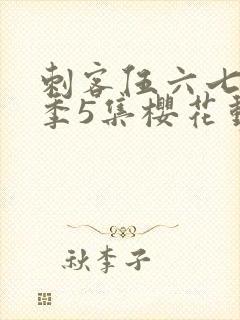 刺客伍六七
季5集樱花
秋李子